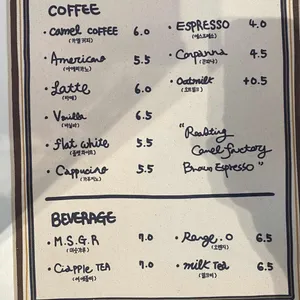 COFFEE
• Camel COFFEE 6.0
(카멜커피)
• Americano 5.5
(아메리카노)
• Latte 6.0
(라떼)
• Vanilla 6.5
(바닐라)
• Flat white 5.5
(플랫화이트)
• Cappucino 5.5
(카푸치노)
• ESPRESSO 4.0
(에스프레소)
• Conpanna 4.5
(콘파냐)
• Oatmilk +0.5
(오트밀크)
Camel
Espresso"
BEVERAGE
• M.S.G.R 7.0
(미숫가루)
• Ciapple TEA 7.0
(씨애플티)
6.5
(오렌지)
• Milk Tea 6.5
(밀크티)